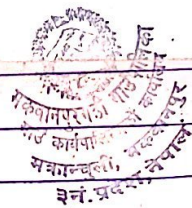 मकवानपुरगढी गाउँपालिका
गाउँ कार्यपालिकाको कार्यालय
मकवानपुर
३नं. प्रदेश, नेपाल